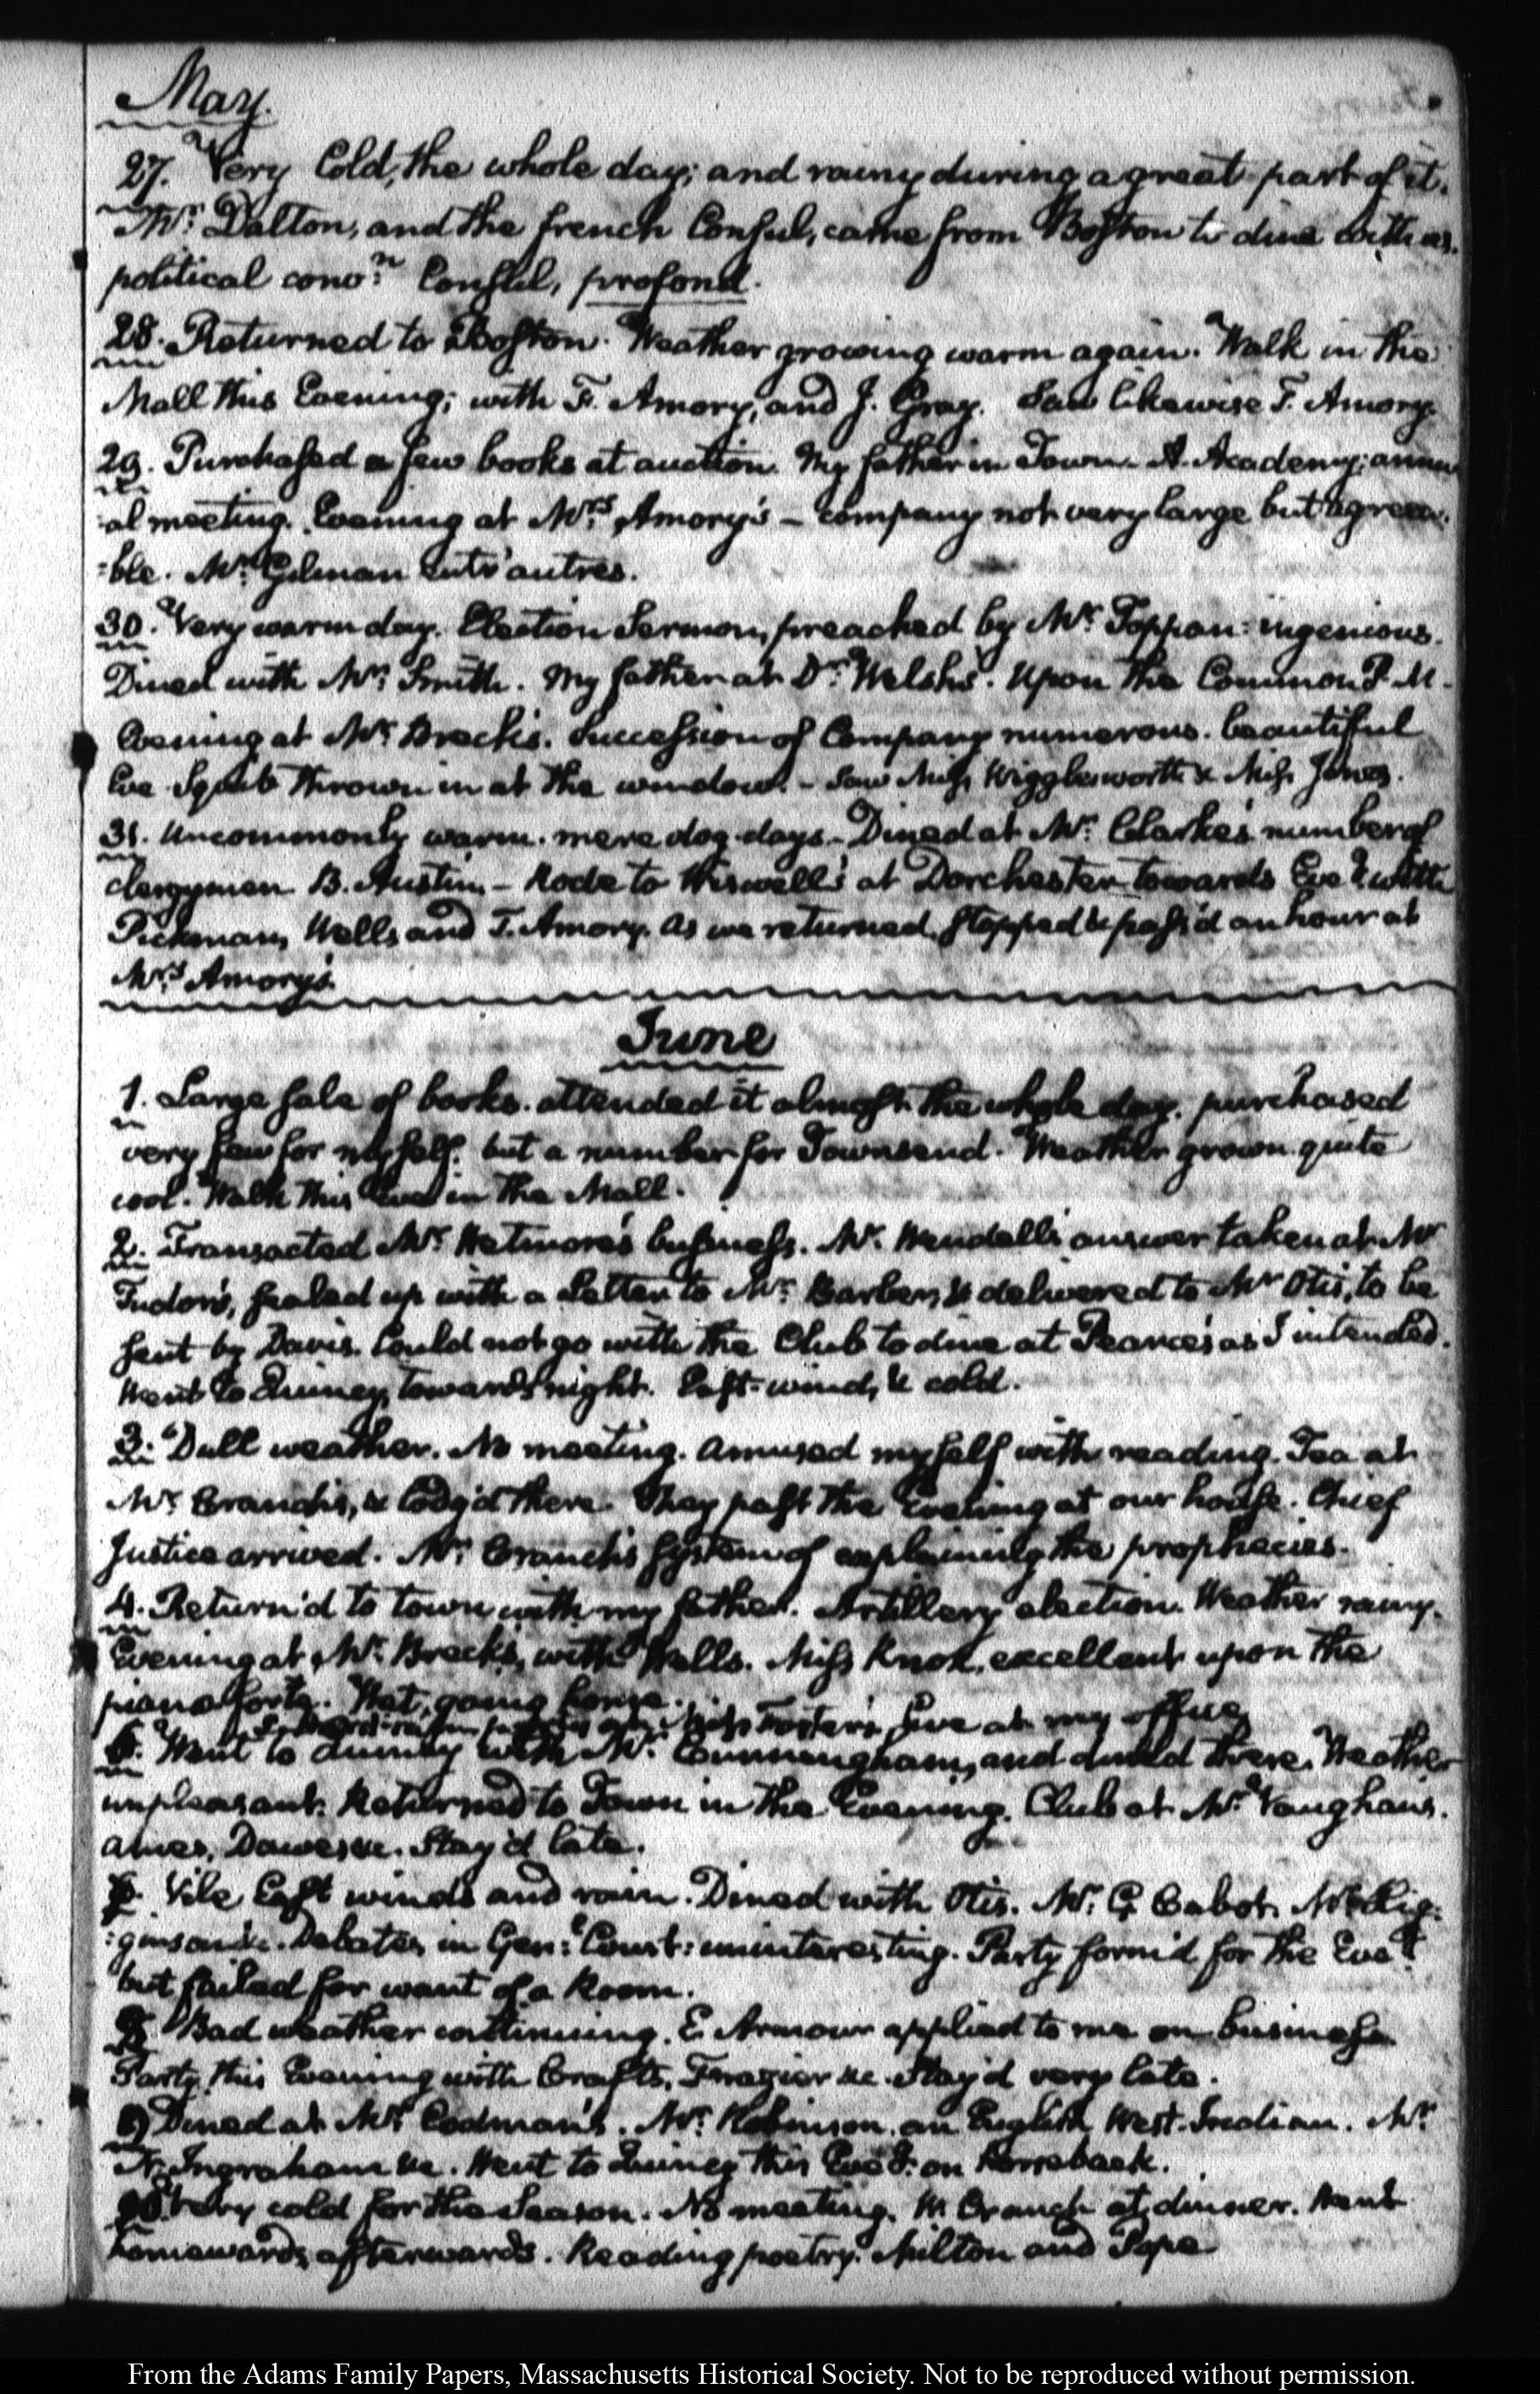 May.
27. Very Cold, the whole day; and rainy during a great part of it.
Mr: Dalton, and the french Consul, came from Boston to dine with us.
political convn: Consul, profond.
28. Returned to Boston. Weather growing warm again. Walk in the
Mall this Evening; with F. Amory, and J. Gray. Saw likewise T. Amory.
29. Purchased a few books at auction. My father in Town. A. Academy; annu
:al meeting. Evening at Mrs: Amory's — company not very large but agreea
:ble. Mr: Gilman entr'autres.
30. Very warm day. Election Sermon, preached by Mr. Tappan: ingenious.
Dined with Mr: Smith. My father at Dr: Welsh's. Upon the Common P.M.
Evening at Mr. Breck's. Succession of Company numerous. beautiful
Eve. Squib thrown in at the window. — Saw Miss Wigglesworth & Miss Jones.
31. Uncommonly warm. mere dog-days. Dined at Mr: Clarke's number of
clergymen B. Austin. — Rode to Wiswell's at Dorchester towards Eveg. with
Pickman, Wells and T. Amory. As we returned, stopped & pass'd an hour at
Mrs: Amory's.
June
1. Large sale of books. attended it almost the whole day. purchased
very few for myself. but a number for Townsend. Weather grown quite
cool. Walk this Eve in the Mall.
2. Transacted Mr. Wetmore's business. Mr. Wendell's answer taken at Mr
Tudor's, sealed up with a letter to Mr: Barber, & delivered to Mr Otis, to be
sent by Davis. Could not go with the Club to dine at Pearce's as I intended.
Went to Quincy, towards night. East-wind, & cold.
3. Dull weather. No meeting. Amused myself with reading. Tea at
Mr. Cranch's, & lodg'd there. They past the Evening at our house. Chief
Justice arrived. Mr: Cranch's system of explaining the prophecies.
4. Return'd to town with my father. Artillery election. Weather rainy.
Evening at Mr. Breck's, with Wells. Miss Knox, excellent upon the
piana forte. Wet, going home.
Miss Foster's, Eve at my office
6. Went to Quincy with Mr. Cunningham, and dined there. Weather
unpleasant. Returned to Town in the Evening. Club at Mr. Vaughan's.
Ames, Dawes &c. Stay'd late.
Vile East winds and rain. Dined with Otis. Mr: G Cabot. Mr. Hig:
:ginson &c. Debates in Genl: Court: uninteresting. Party form'd for the Eveg:
but failed for want of a Room.
Bad weather continuing. E. Armour applied to me on business.
Party this Evening with Crafts, Frazier &c. Stay'd very late.
9) Dined at Mr. Codman's. Mr. Robinson, an English West-Indian. Mr.
N. Ingraham &c. Went to Quincy this Eveg. on Horseback.
10. Very cold for the Season. No meeting. W. Cranch at dinner. Went
homewards, afterwards. Reading poetry. Milton and Pope
From the Adams Family Papers, Massachusetts Historical Society. Not to be reproduced without permission.